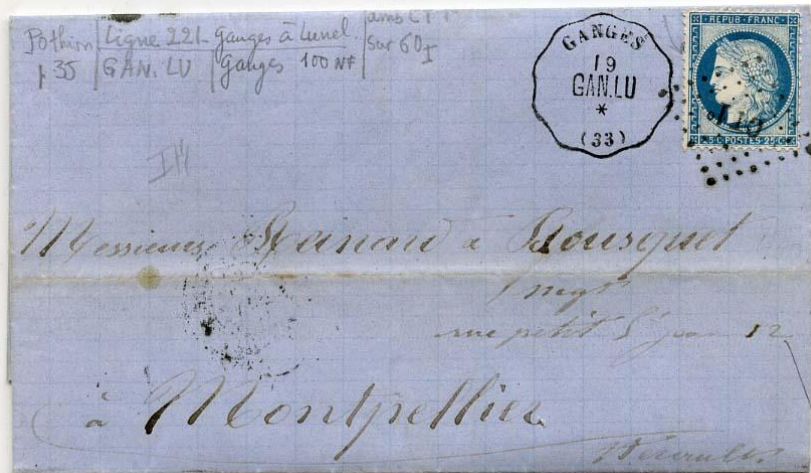 Pothion Ligne 221- Ganges à Lunel amb CT 1
p 35 GAN. LU Ganges 100 NF sur 60 I
GANGES
19
GAN.LU
*
(33)
REPUB·FRANC
25C·POSTES·25C
Messieurs à Bousquet
negt
rue petit St jean 12
à Montpellier
Hérault